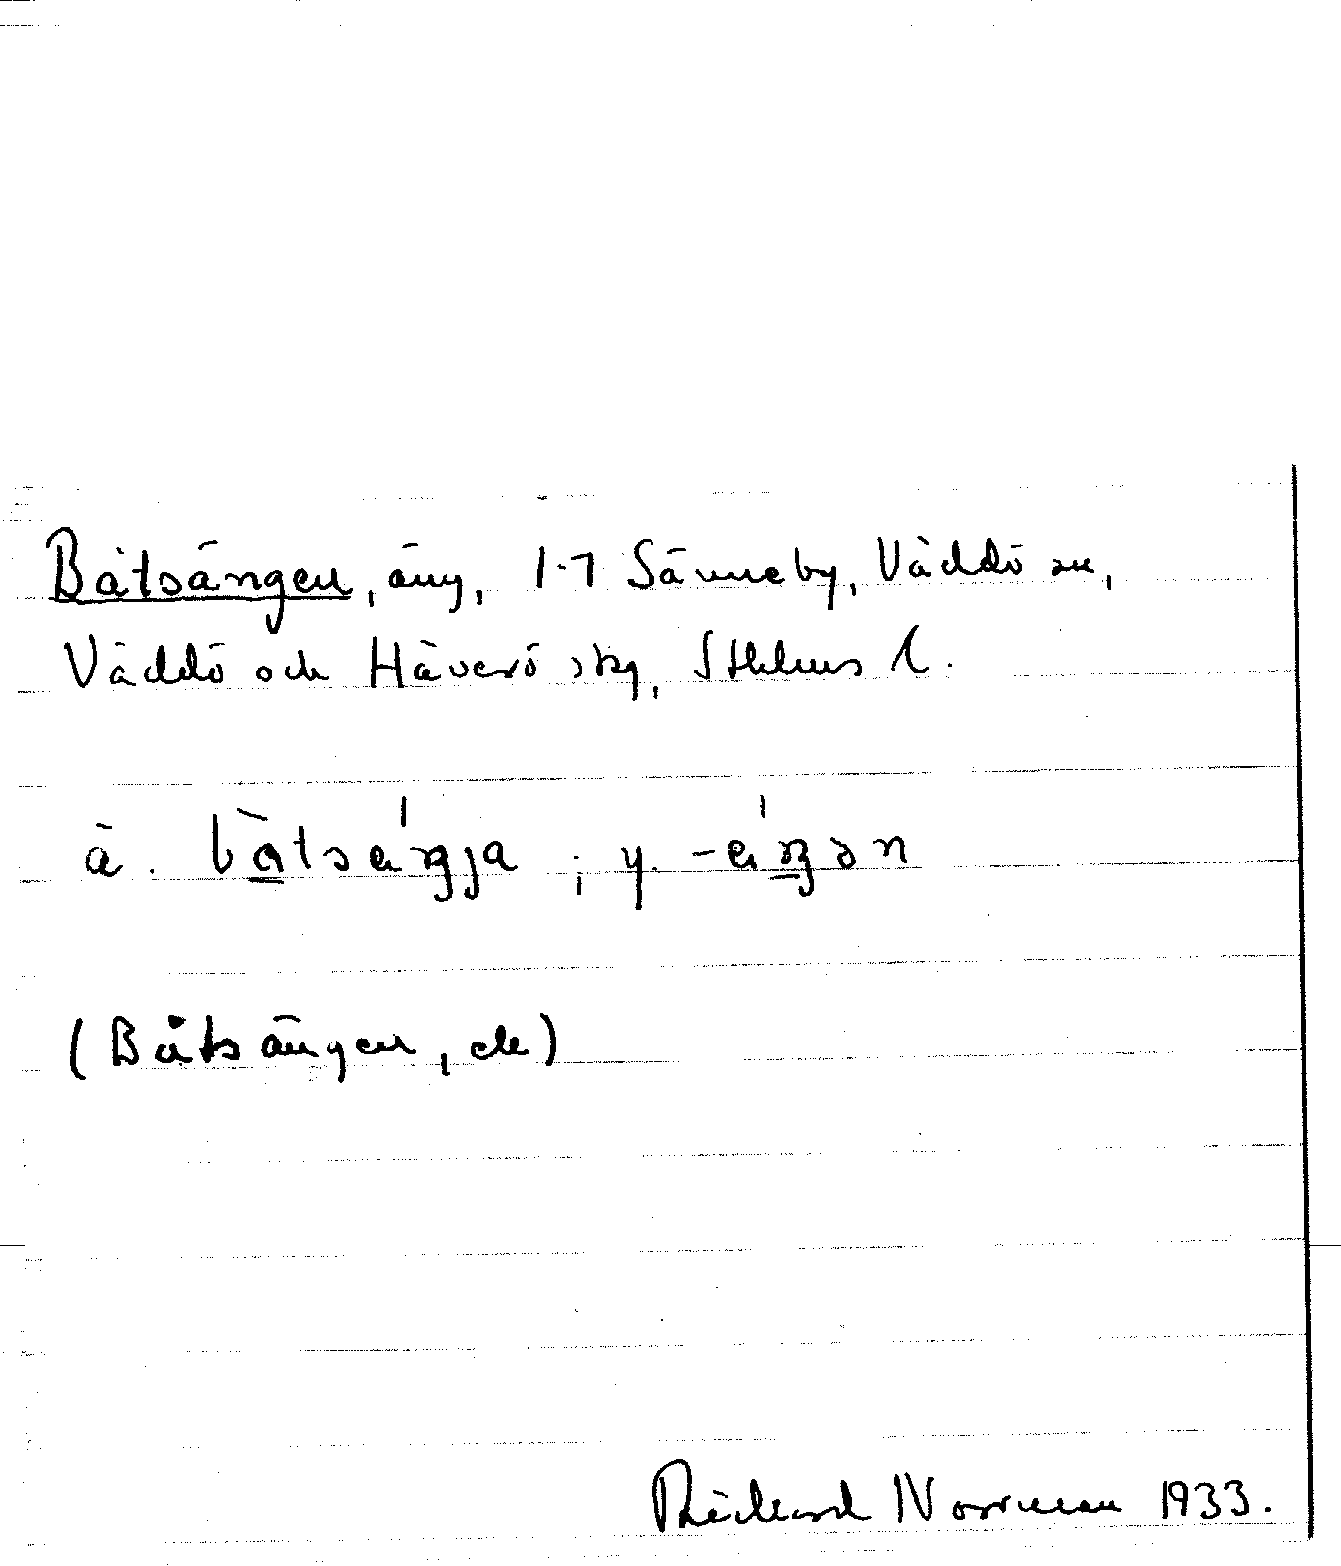 Båtsängen, äng, 1-7 Sänneby, Väddö sn,
Väddö och Häverö skg, Sthlms l.
ä. båtsäŋja ; y. -äŋən
(Båtsängen, de)
Rickard Norrman 1933.